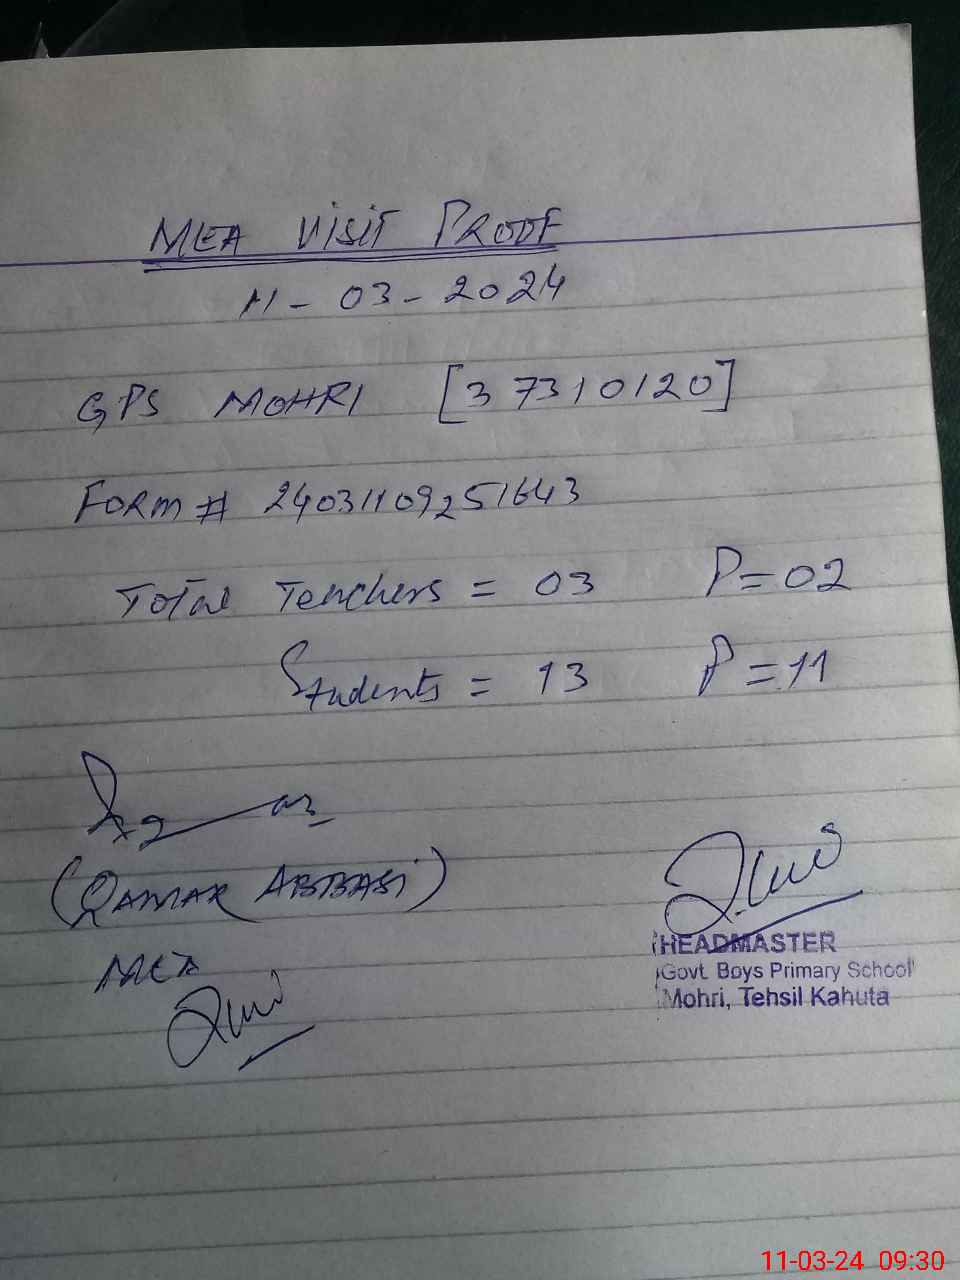 MEA VISIT PROOF
11-03-2024
GPS MOHRI [37310120]
Form # 24031109251643
Total Teachers = 03 P=02
Students = 13 P=11
(QAMAR ABBASI)
MEA
HEADMASTER
Govt. Boys Primary School
Mohri, Tehsil Kahuta
11-03-24 09:30